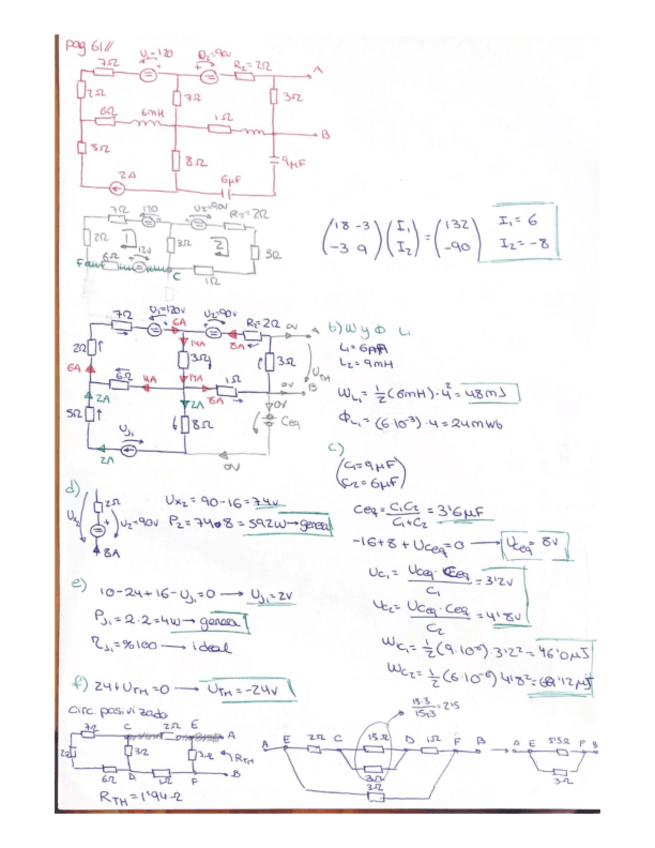 pag 61//
7Ω U₁=120 U₂=90V R₂=2Ω A
2Ω 7Ω 3Ω
6Ω 6mH 1Ω B
5Ω 8Ω 9μF
2A 6μF
7Ω 120 U₂=90V R₂=2Ω
2Ω 1 3Ω 2 3Ω
F 6Ω 12V C 1Ω
(18 -3 / -3 9) (I₁ / I₂) = (132 / -90) I₁ = 6 I₂ = -8
7Ω U₁=120V 6A U₂=90V R₂=2Ω 0V A
2Ω 14A 8A
3Ω 3Ω UTH
6A 6Ω 4A 14A 1Ω 0V B
2A 8A
5Ω 2A 6 8Ω 0V Ceq
Uj₁
2A 0V
b) W y Φ L₁
L₁=6mH
L₂=9mH
WL₁=½(6mH)·4²=48mJ
ΦL₁=(6·10⁻³)·4=24mWb
c)
(C₁=9μF
C₂=6μF)
Ceq=C₁C₂/C₁+C₂=3'6μF
-16+8+UCeq=0 → UCeq=8V
UC₁=UCeq·Ceq/C₁=3'2V
UC₂=UCeq·Ceq/C₂=4'8V
WC₁=½(9·10⁻⁶)·3'2²=46'0μJ
WC₂=½(6·10⁻⁶)4'8²=69'12μJ
d)
2Ω
Ux₂ U₂=90V
8A
Ux₂=90-16=74V
P₂=74·8=592W→genera
e) 10-24+16-Uj₁=0 → Uj₁=2V
Pj₁=2·2=4W→genera
ηj₁=%100 → ideal
f) 24+UTH=0 → UTH=-24V
circ. pasivizado
7Ω C 2Ω E A
2Ω 3Ω 3Ω RTH
6Ω D 1Ω F B
RTH=1'94Ω
15·3/15+3=2'5
A E 2Ω C 15Ω D 1Ω F B → A E 5'5Ω F B
3Ω 3Ω
3Ω